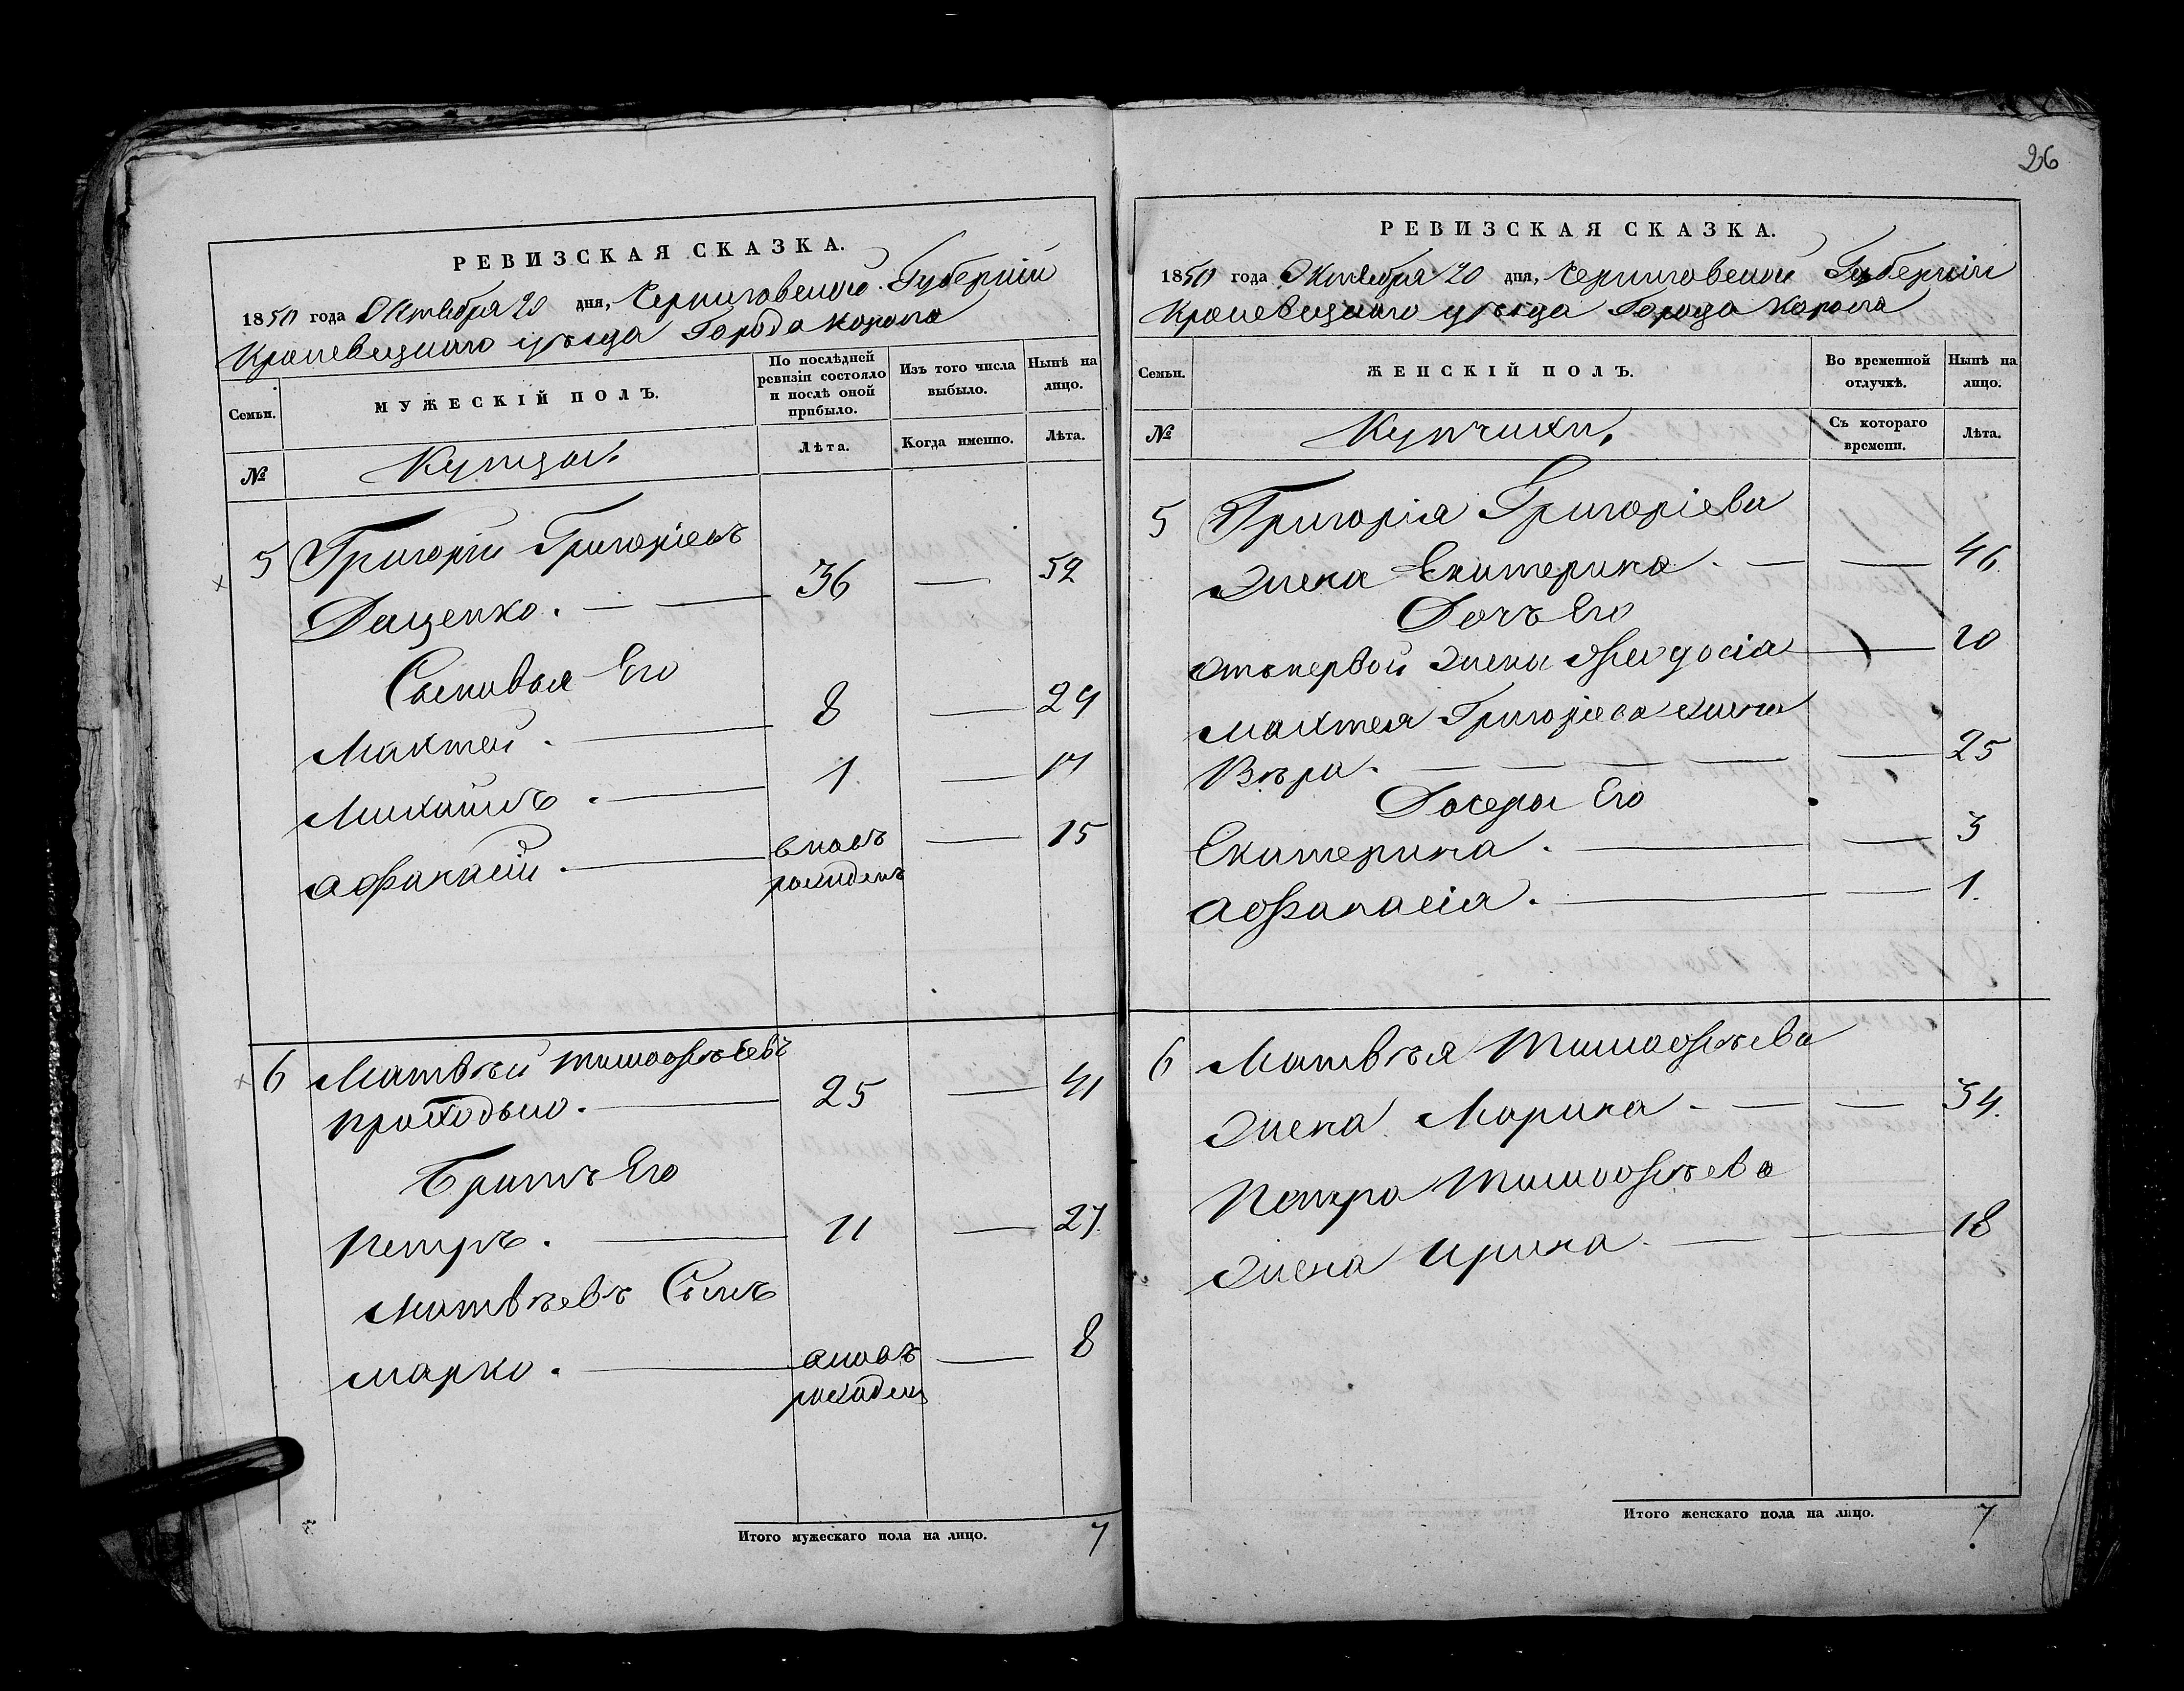 РЕВИЗСКАЯ СКАЗКА.
1850 года Октября 20 дня, Черниговской Губерніи
Кролевецкаго уѣзда Города Коропа
Семьи.
МУЖЕСКІЙ ПОЛЪ.
По послѣдней ревизіи состояло и послѣ оной прибыло.
Изъ того числа выбыло.
Нынѣ на лицо.
№
Купцы.
Лѣта.
Когда именно.
Лѣта.
5 Григорій Григорьевъ
Даценко. 36 — 52
Сыновья Его
Мактей. 8 — 24
Михайлъ. 1 — 17
Афанасій. вновь рожденъ — 15
6 Матвѣй Тимофѣевъ
Проходько. 25 — 41
Братъ Его
Петръ. 11 — 27.
Матвѣевъ Сынъ
Марко. вновь рожден — 8
Итого мужескаго пола на лицо. 7
26
РЕВИЗСКАЯ СКАЗКА.
1850 года Октября 20 дня, Черниговской Губерніи
Кролевецкаго уѣзда Города Коропа
Семьи.
ЖЕНСКІЙ ПОЛЪ.
Во временной отлучкѣ.
Нынѣ на лицо.
№
Купчихи.
Съ котораго времени.
Лѣта.
5 Григорія Григоріева
Жена Екатерина. — — 46
Дочь Его
отъ первой жены Феодосіа — 20
Мактея Григоріева жена
Вѣра. — — 25
Дочери Его
Екатерина. — — 3
Афанасіа. — — 1.
6 Матвѣя Тимофѣева
Жена Марина — — 34.
Петра Тимофѣева
Жена Ирина. — — 18
Итого женскаго пола на лицо. 7